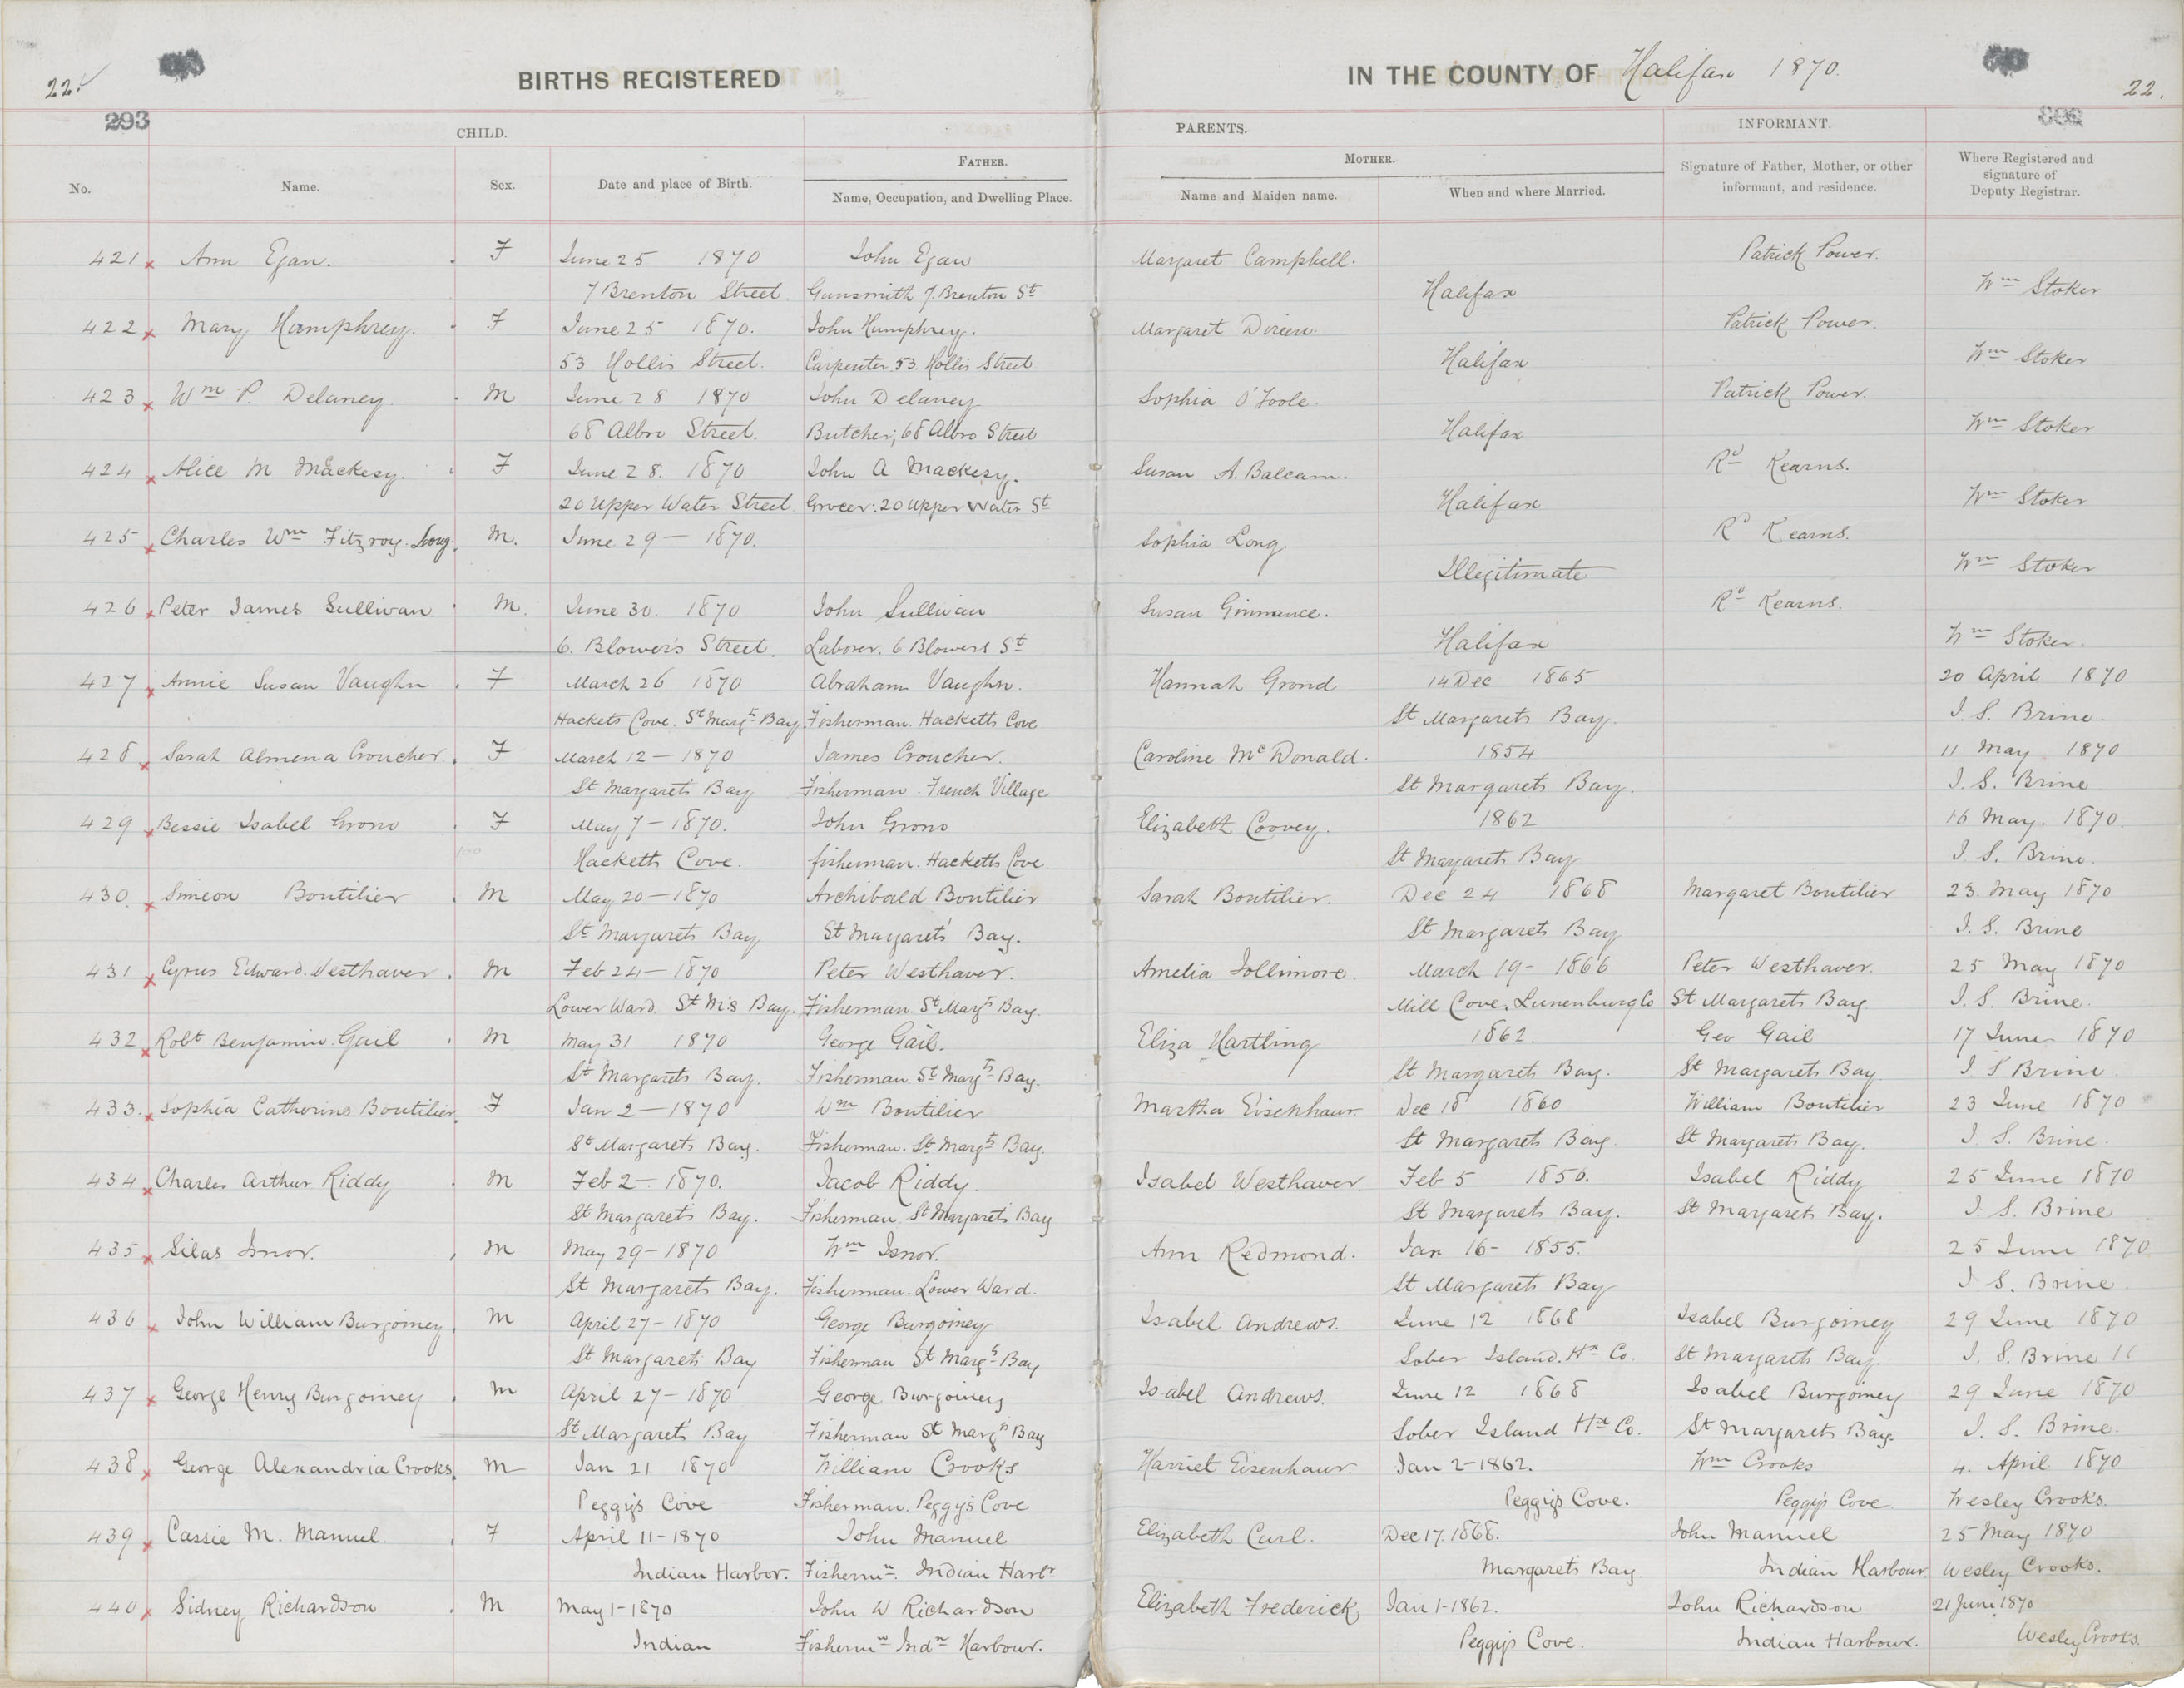 22.
BIRTHS REGISTERED
IN THE COUNTY OF Halifax 1870.
22.
293
CHILD.
PARENTS.
INFORMANT.
No.
Name.
Sex.
Date and place of Birth.
FATHER.
Name, Occupation, and Dwelling Place.
MOTHER.
Name and Maiden name.
When and where Married.
Signature of Father, Mother, or other
informant, and residence.
Where Registered and
signature of
Deputy Registrar.
421 Ann Egan. F June 25 1870 John Egan Margaret Campbell. Patrick Power.
7 Brenton Street. Gunsmith 7. Brenton St Halifax Wm Stoker
422 Mary Humphrey. F June 25 1870. John Humphrey. Margaret Patrick Power.
53 Hollis Street. Carpenter 53. Hollis Street Halifax Wm Stoker
423 Wm P. Delaney M June 28 1870 John Delaney Sophia O'Toole. Patrick Power.
68 Albro Street. Butcher; 68 Albro Street Halifax Wm Stoker
424 Alice M Mackesy. F June 28. 1870 John A Mackesy. Susan A. Balcam. Rd Kearns.
20 Upper Water Street Grocer: 20 Upper Water St Halifax Wm Stoker
425 Charles Wm Fitzroy Long. M. June 29 — 1870. Sophia Long. Rd Kearns.
Illegitimate Wm Stoker
426 Peter James Sullivan M. June 30. 1870 John Sullivan Susan Rd Kearns.
6. Blower's Street. Laborer. 6 Blowers St Halifax Wm Stoker.
427 Annie Susan Vaughn F March 26 1870 Abraham Vaughn. Hannah Grond 14 Dec 1865 20 April 1870
Hackets Cove. St Margts Bay. Fisherman. Hacketts Cove St Margarets Bay. J. S. Brine
428 Sarah Almena Croucher. F March 12 — 1870 James Croucher. Caroline McDonald. 1854 11 May 1870
St Margarets Bay Fisherman. French Village St Margarets Bay. J. S. Brine
429 Bessie Isabel Grono F May 7 — 1870. John Grono Elizabeth Coovey. 1862 16 May. 1870.
100 Hacketts Cove. fisherman. Hacketts Cove St Margarets Bay J. S. Brine.
430. Simeon Boutilier M May 20 — 1870 Archibald Boutilier Sarah Boutilier. Dec 24 1868 Margaret Boutilier 23. May 1870
St Margarets Bay St Margarets Bay. St Margarets Bay J. S. Brine
431 Cyrus Edward Westhaver. M Feb 24 — 1870 Peter Westhaver. Amelia Jollimore. March 19 - 1866 Peter Westhaver. 25 May 1870
Lower Ward. St M's Bay. Fisherman. St Margts Bay. Mill Cove. Lunenburg Co St Margarets Bay J. S. Brine.
432 Robt Benjamin Gail M May 31 1870 George Gail. Eliza Hartling 1862. Geo Gail 17 June 1870
St Margarets Bay. Fisherman. St Margts Bay. St Margarets Bay. St Margarets Bay J. S Brine
433. Sophia Catherine Boutilier. F Jan 2 — 1870 Wm Boutilier Martha Eisenhaur. Dec 18 1860 William Boutilier 23 June 1870
St Margarets Bay. Fisherman. St Margts Bay. St Margarets Bay. St Margarets Bay. J. S. Brine.
434 Charles Arthur Riddy M Feb 2 — 1870. Jacob Riddy. Isabel Westhaver. Feb 5 1850. Isabel Riddy 25 June 1870
St Margarets Bay. Fisherman. St Margarets Bay St Margarets Bay. St Margarets Bay. J. S. Brine
435 Silas Isnor. M May 29 - 1870 Wm Isnor. Ann Redmond. Jan 16 - 1855. 25 June 1870
St Margarets Bay. Fisherman. Lower Ward. St Margarets Bay J. S. Brine.
436 John William Burgoiney. M April 27 - 1870 George Burgoiney Isabel Andrews. June 12 1868 Isabel Burgoiney 29 June 1870
St Margarets Bay Fisherman St Margts Bay Sober Island. Hx Co. St Margarets Bay. J. S. Brine
437 George Henry Burgoiney M April 27 - 1870 George Burgoiney Isabel Andrews. June 12 1868 Isabel Burgoiney 29 June 1870
St Margarets Bay Fisherman St Margts Bay Sober Island Hx Co. St Margarets Bay. J. S. Brine.
438 George Alexandria Crooks. M Jan 21 1870 William Crooks Harriet Eisenhaur Jan 2 - 1862. Wm Crooks 4. April 1870
Peggy's Cove Fisherman. Peggy's Cove Peggys Cove. Peggys Cove. Wesley Crooks.
439 Cassie M. Manuel. F April 11 - 1870 John Manuel Elizabeth Curl. Dec 17. 1868. John Manuel 25 May 1870
Indian Harbor. Fishermn. Indian Harbr. Margarets Bay. Indian Harbour. Wesley Crooks.
440 Sidney Richardson M May 1 - 1870 John W Richardson Elizabeth Frederick Jan 1 - 1862. John Richardson 21 June 1870
Indian Fishermn Indn Harbour. Peggys Cove. Indian Harbour. Wesley Crooks.